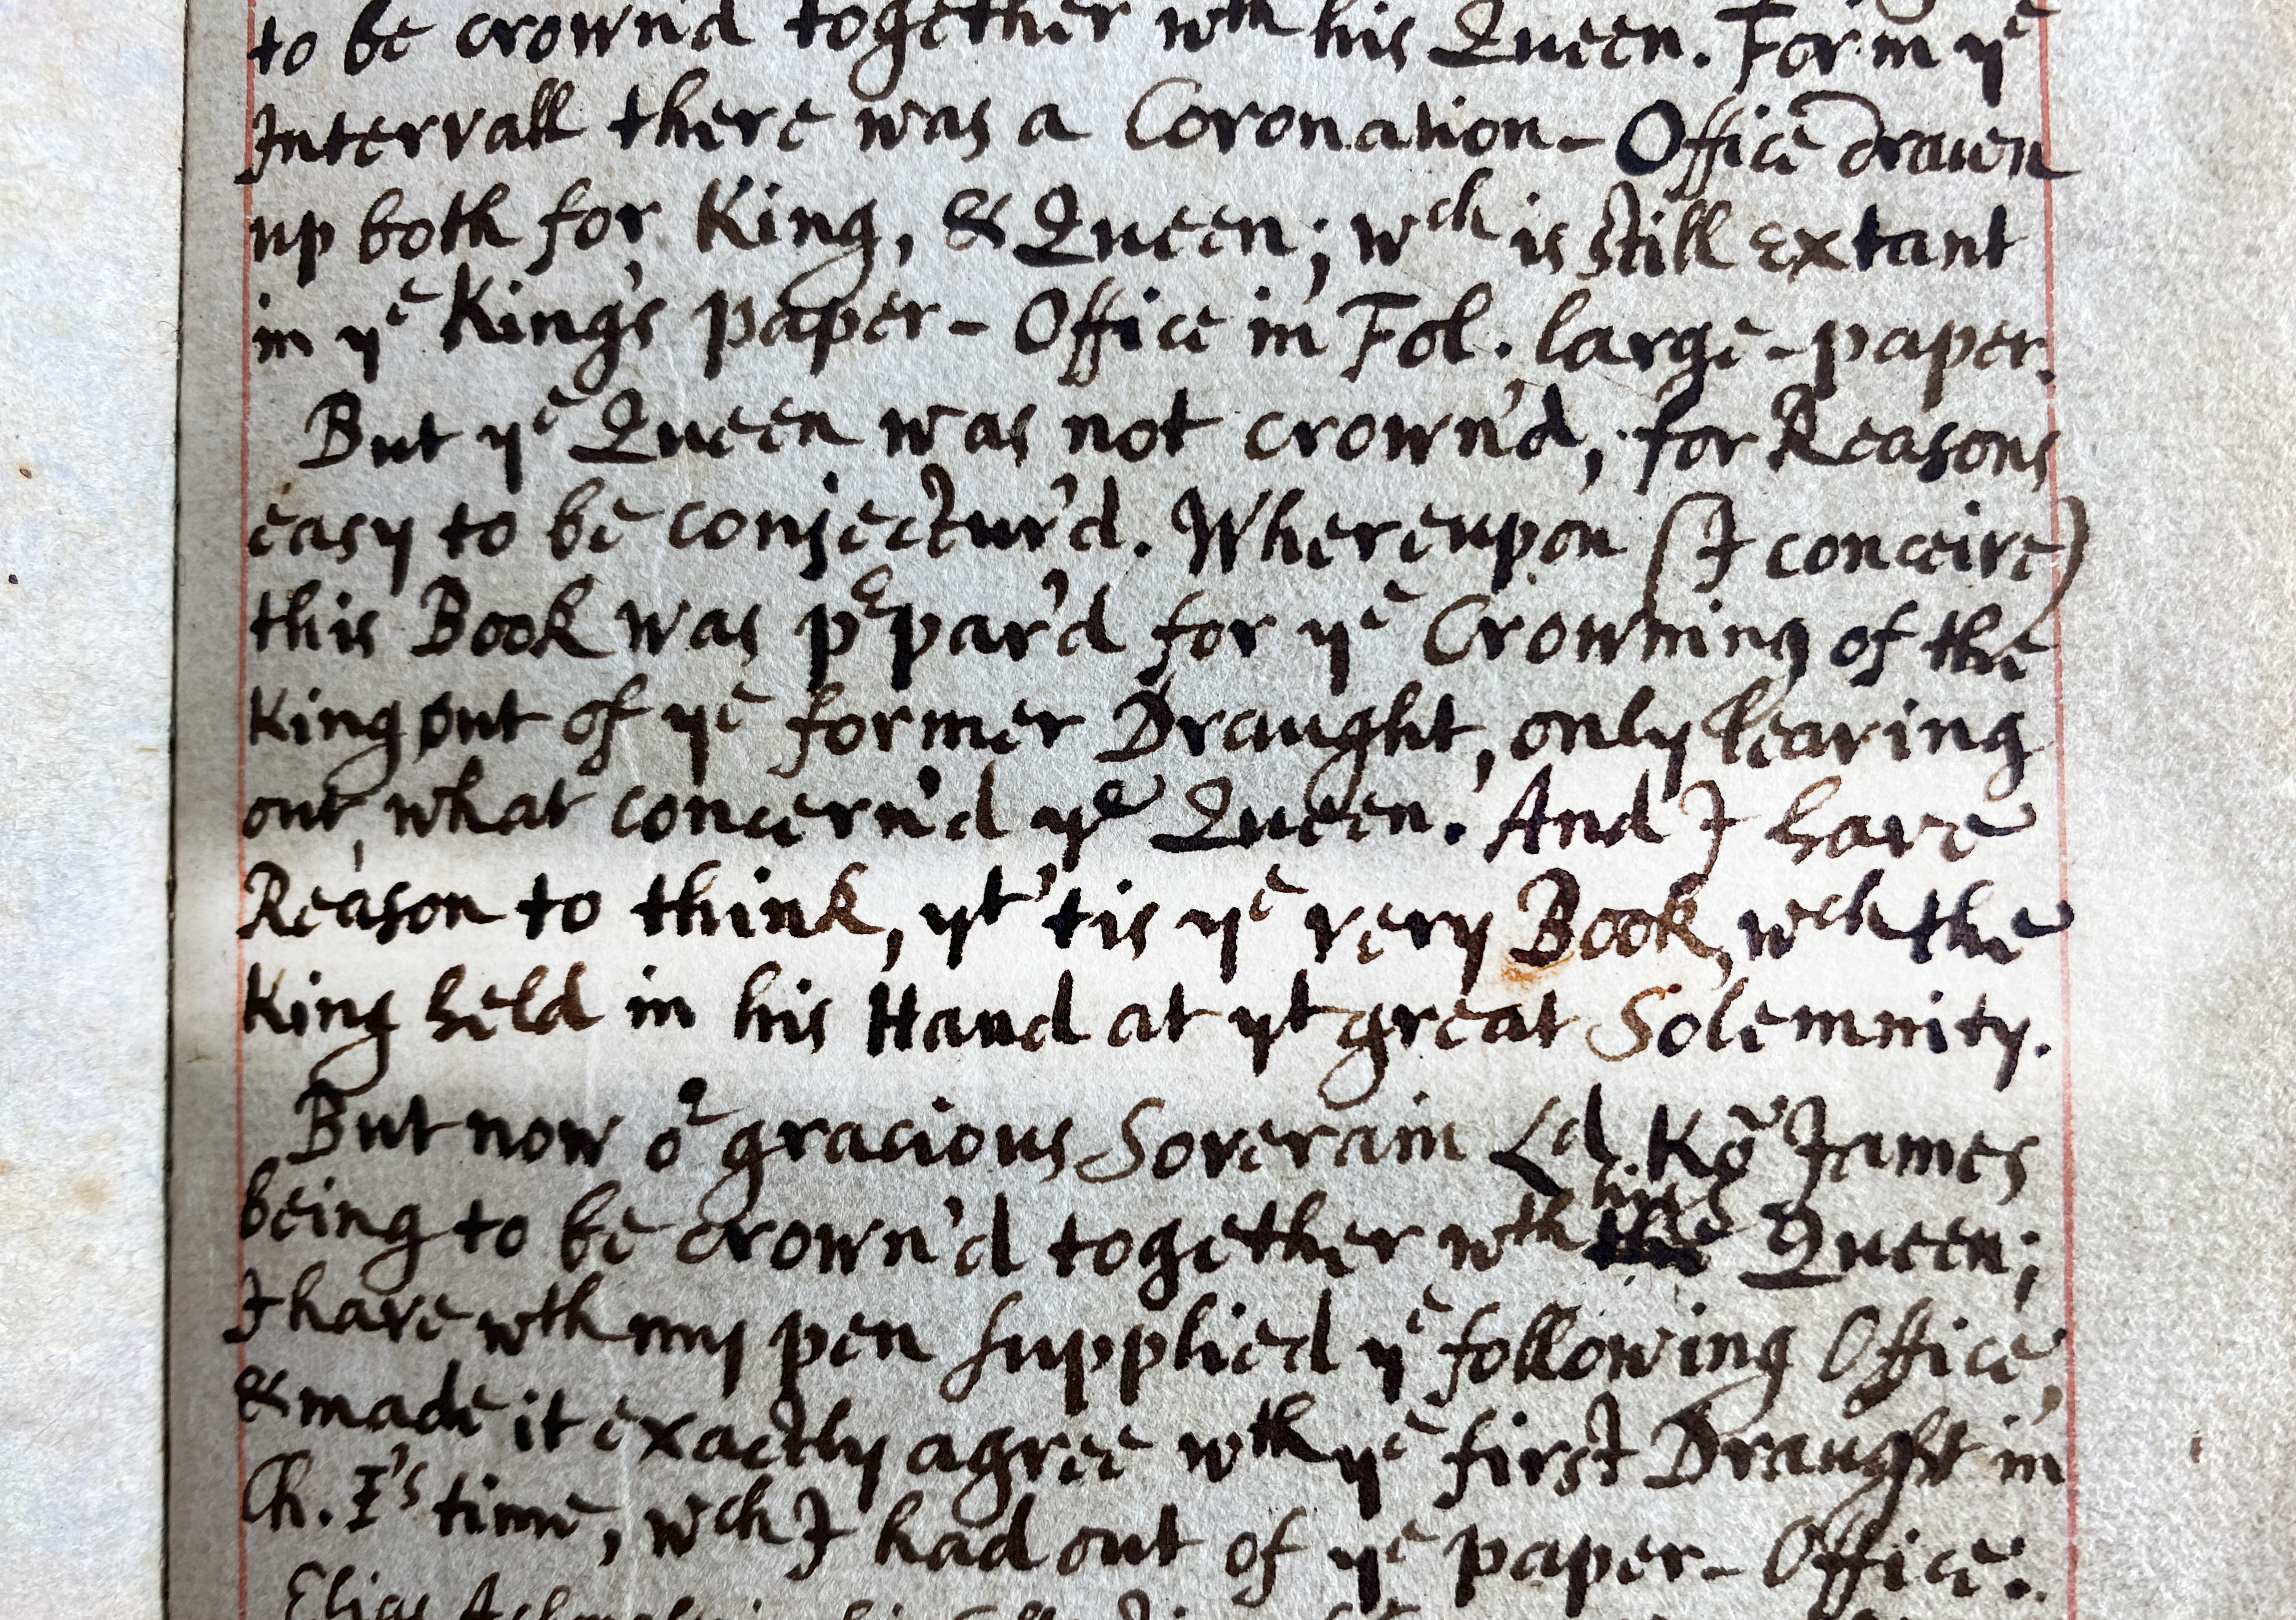 to be crown'd together wth his Queen. For in ye
Intervall there was a Coronation-Office drawn
up both for King, & Queen; wch is still extant
in ye King's paper-Office in Fol. large-paper.
But ye Queen was not crown'd, for Reasons
easy to be conjectur'd. Whereupon (I conceive)
this Book was pepar'd for ye Crowning of the
King out of ye former Draught, only leaving
out, what concern'd ye Queen. And I have
Reason to think, yt 'tis ye very Book, wch the
King held in his Hand at yt great Solemnity.
But now or gracious Soverain Ld. Kg James
being to be crown'd together wth his Queen;
I have wth my pen supplied ye following Office,
& made it exactly agree wth ye first Draught in
Ch. I's time, wch I had out of ye paper-Office.
Elias